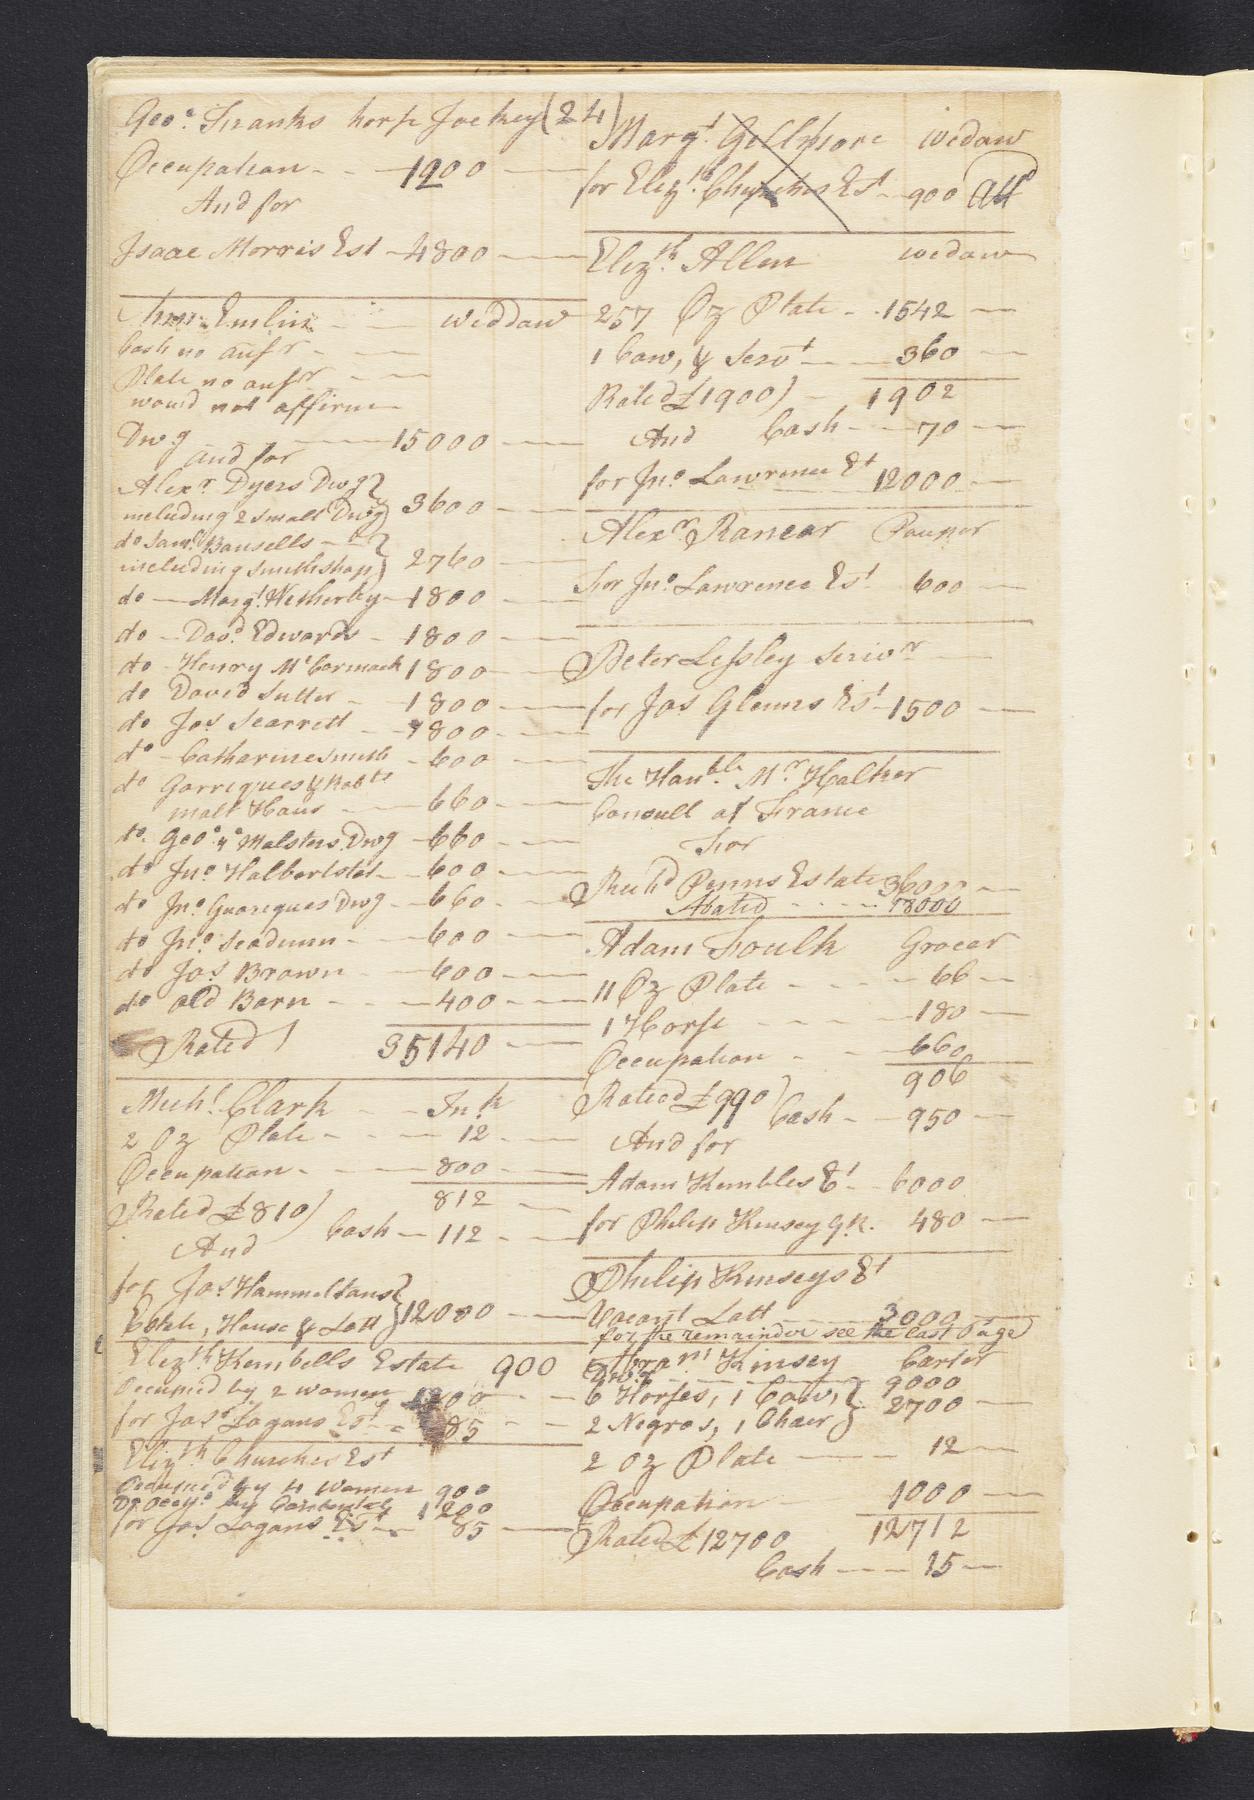 Geo.e Franks horse Jockey (24)
Occupation - - 1200
And for
Isaac Morris Est - 4800
Ann Emlin - - weddaw
Cash no ansr - -
Plate no ansr - -
would not affirm
Dwg 15000
and for
Alexr. Dyers Dwg }
including 2 small Dwg } 3600
do Saml. Bausells - }
including smithshop } 2760
do - Margt. Wetherby - 1800
do - Davd. Edwards - 1800
do - Henry McCormack 1800
do David Sutter - 1800
do Jos Searrett - 1800
do - Catharine Smith - 600
do Garriques & Robts
malt Haus - 660
do. Geo.e ye Malsters Dwg - 660
do Jno. Halbertstat - 600
do Jno. Guariques Dwg - 660
do Jno. Seadmun - 600
do Jos. Brown - 600
do old Barn - - 400
Rated 35140
Michl. Clark - - Ink
2 Oz Plate - - 12
Occupation - - 800
812
Rated £810)
Cash - 112
And
for Jas. Hammeltans }
Estate, House & Lott } 12000
Elizth. Kembells Estate 900
Occupied by 2 women 1200
for Jas. Logans Est - 85
Elizth. Churches Est
Occupied by 4 women 900
Do Occyd. by 1200
for Jas. Logans Est - 85
Margt. Gillmore wedaw
for Elizth. Churches Est - 900
Elizth. Allen wedaw
257 Oz Plate - 1542
1 Caw, & Servt - 360
Rated £1900) 1902
And Cash - 70
for Jno. Lawrence Et 12000
Alexr. Rancar Pauper
For Jno. Lawrence Est 600
Peter Lessley Scrivr
for Jas Glenns Est - 1500
The Hanble. Mr. Halker
Consull of France
For
Richd Penns Estate 36000
Abated - - 18000
Adam Foulk Grocer
11 Oz Plate - - 66
1 Horse - - 180
Occupation - - 660
906
Rated £990)
Cash - 950
And for
Adam Kembles Et - 6000
for Philip Kinsey G.R. 480
Philip Kinseys Et
Vacant Lott 3000
for the remainder see the last Page
Abram Kinsey Carter
Dwg - - 9000
6 Horses, 1 Caw, }
2 Negros, 1 Chair } 2700
2 Oz Plate - - 12
Occupation - 1000
Rated £12700 12712
Cash - - 15